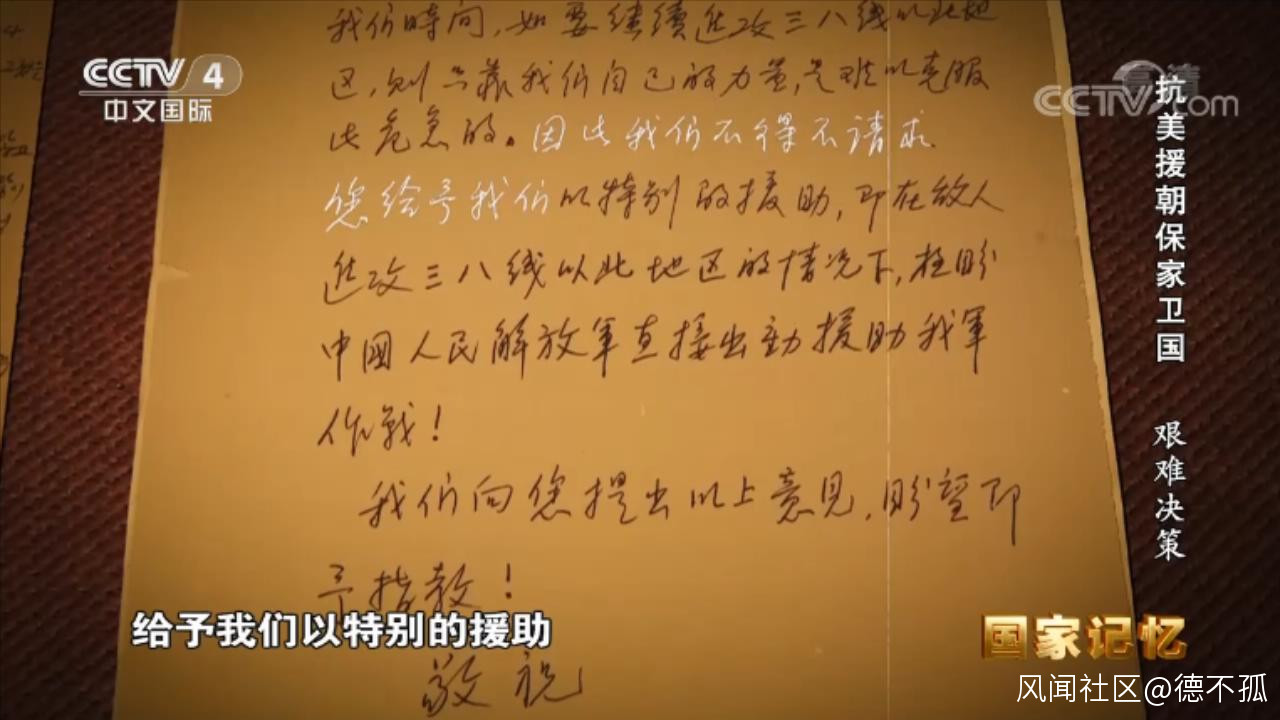 CCTV 4
中文国际
高清
CCTV.com
抗美援朝保家卫国 艰难决策
我们时间，如要继续进攻三八线以北地
区，则只靠我们自己的力量，是难以克服
此危急的。因此我们不得不请求
您给予我们以特别的援助，即在敌人
进攻三八线以北地区的情况下，极盼
中國人民解放軍直接出动援助我軍
作战！
我们向您提出以上意見，盼望即
予指教！
敬祝
给予我们以特别的援助
国家记忆
风闻社区@德不孤